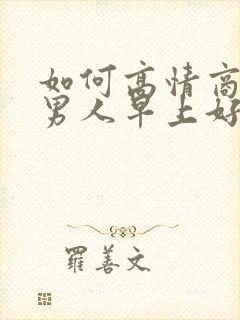 如何高情商
男人早上好
羅善文